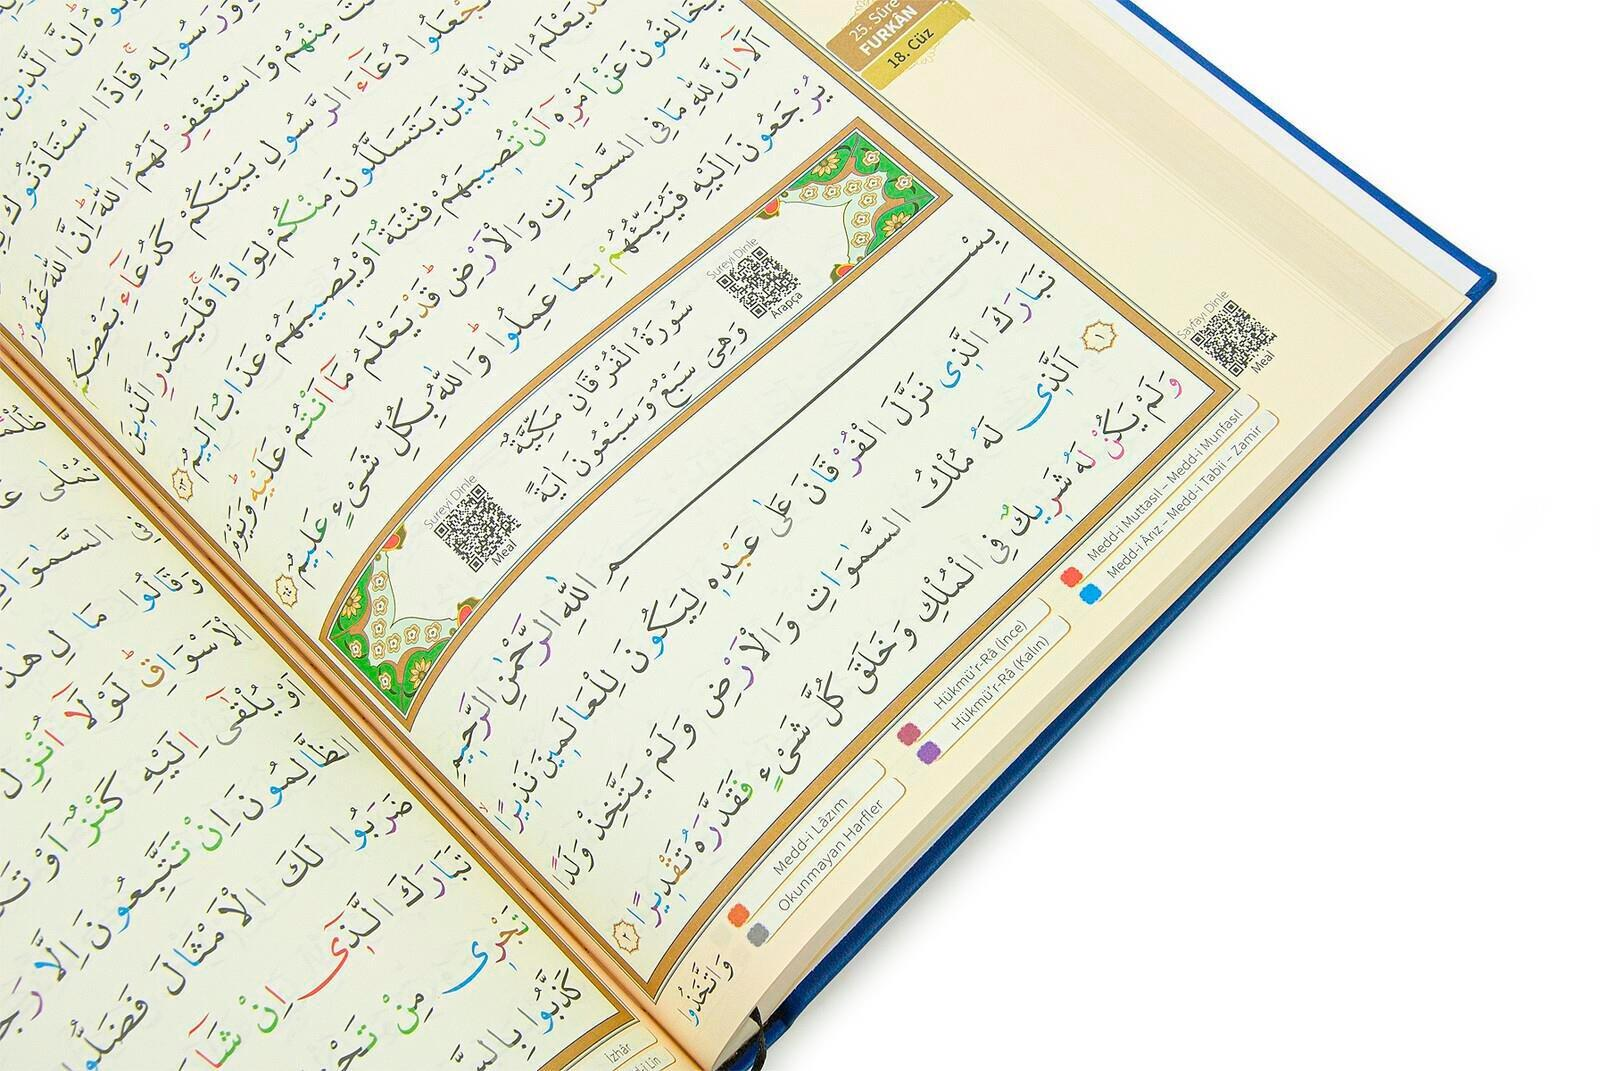 25. Sûre
FURKÂN
18. Cüz
اِنَّ الَّذِينَ
وَرَسُولِهٖ فَاِذَا اسْتَأْذَنُوكَ
مِنْهُمْ وَاسْتَغْفِرْ لَهُمُ اللّٰهَ اِنَّ اللّٰهَ غَفُورٌ
تَجْعَلُوا دُعَٓاءَ الرَّسُولِ بَيْنَكُمْ كَدُعَٓاءِ بَعْضِكُمْ
يَعْلَمُ اللّٰهُ الَّذِينَ يَتَسَلَّلُونَ مِنْكُمْ لِوَاذًا فَلْيَحْذَرِ الَّذِينَ
يُخَالِفُونَ عَنْ اَمْرِهٖٓ اَنْ تُصِيبَهُمْ فِتْنَةٌ اَوْ يُصِيبَهُمْ عَذَابٌ اَلِيمٌ ٦٣
اَلَٓا اِنَّ لِلّٰهِ مَا فِي السَّمٰوَاتِ وَالْاَرْضِ قَدْ يَعْلَمُ مَٓا اَنْتُمْ عَلَيْهِ وَيَوْمَ
يُرْجَعُونَ اِلَيْهِ فَيُنَبِّئُهُمْ بِمَا عَمِلُوا وَاللّٰهُ بِكُلِّ شَيْءٍ عَلِيمٌ ٦٤
Sureyi Dinle
Arapça
سُورَةُ الْفُرْقَانِ مَكِّيَّةٌ
وَهِيَ سَبْعٌ وَسَبْعُونَ اٰيَةً
Sureyi Dinle
Meal
بِسْمِ اللّٰهِ الرَّحْمٰنِ الرَّحِيمِ
تَبَارَكَ الَّذِى نَزَّلَ الْفُرْقَانَ عَلٰى عَبْدِهٖ لِيَكُونَ لِلْعَالَمِينَ نَذِيرًا
١ اَلَّذِى لَهُ مُلْكُ السَّمٰوَاتِ وَالْاَرْضِ وَلَمْ يَتَّخِذْ وَلَدًا
وَلَمْ يَكُنْ لَهُ شَرِيكٌ فِي الْمُلْكِ وَخَلَقَ كُلَّ شَيْءٍ فَقَدَّرَهُ تَقْدِيرًا ٢
وَاتَّخَذُوا
Sayfayı Dinle
Meal
Medd-i Muttasıl - Medd-i Munfasıl
Medd-i Ârız - Medd-i Tabii - Zamir
Hükmü'r-Râ (İnce)
Hükmü'r-Râ (Kalın)
Medd-i Lâzım
Okunmayan Harfler
فِي السَّمٰوَاتِ
وَقَالُوا مَا لِ هٰذَا
الْاَسْوَاقِ لَوْلَٓا اُنْزِلَ
اَوْ يُلْقٰٓى اِلَيْهِ كَنْزٌ اَوْ
الظَّالِمُونَ اِنْ تَتَّبِعُونَ اِلَّا
ضَرَبُوا لَكَ الْاَمْثَالَ فَضَلُّوا
تَبَارَكَ الَّذِٓى اِنْ شَٓاءَ
تَجْرِى مِنْ
كَذَّبُوا
İzhâr